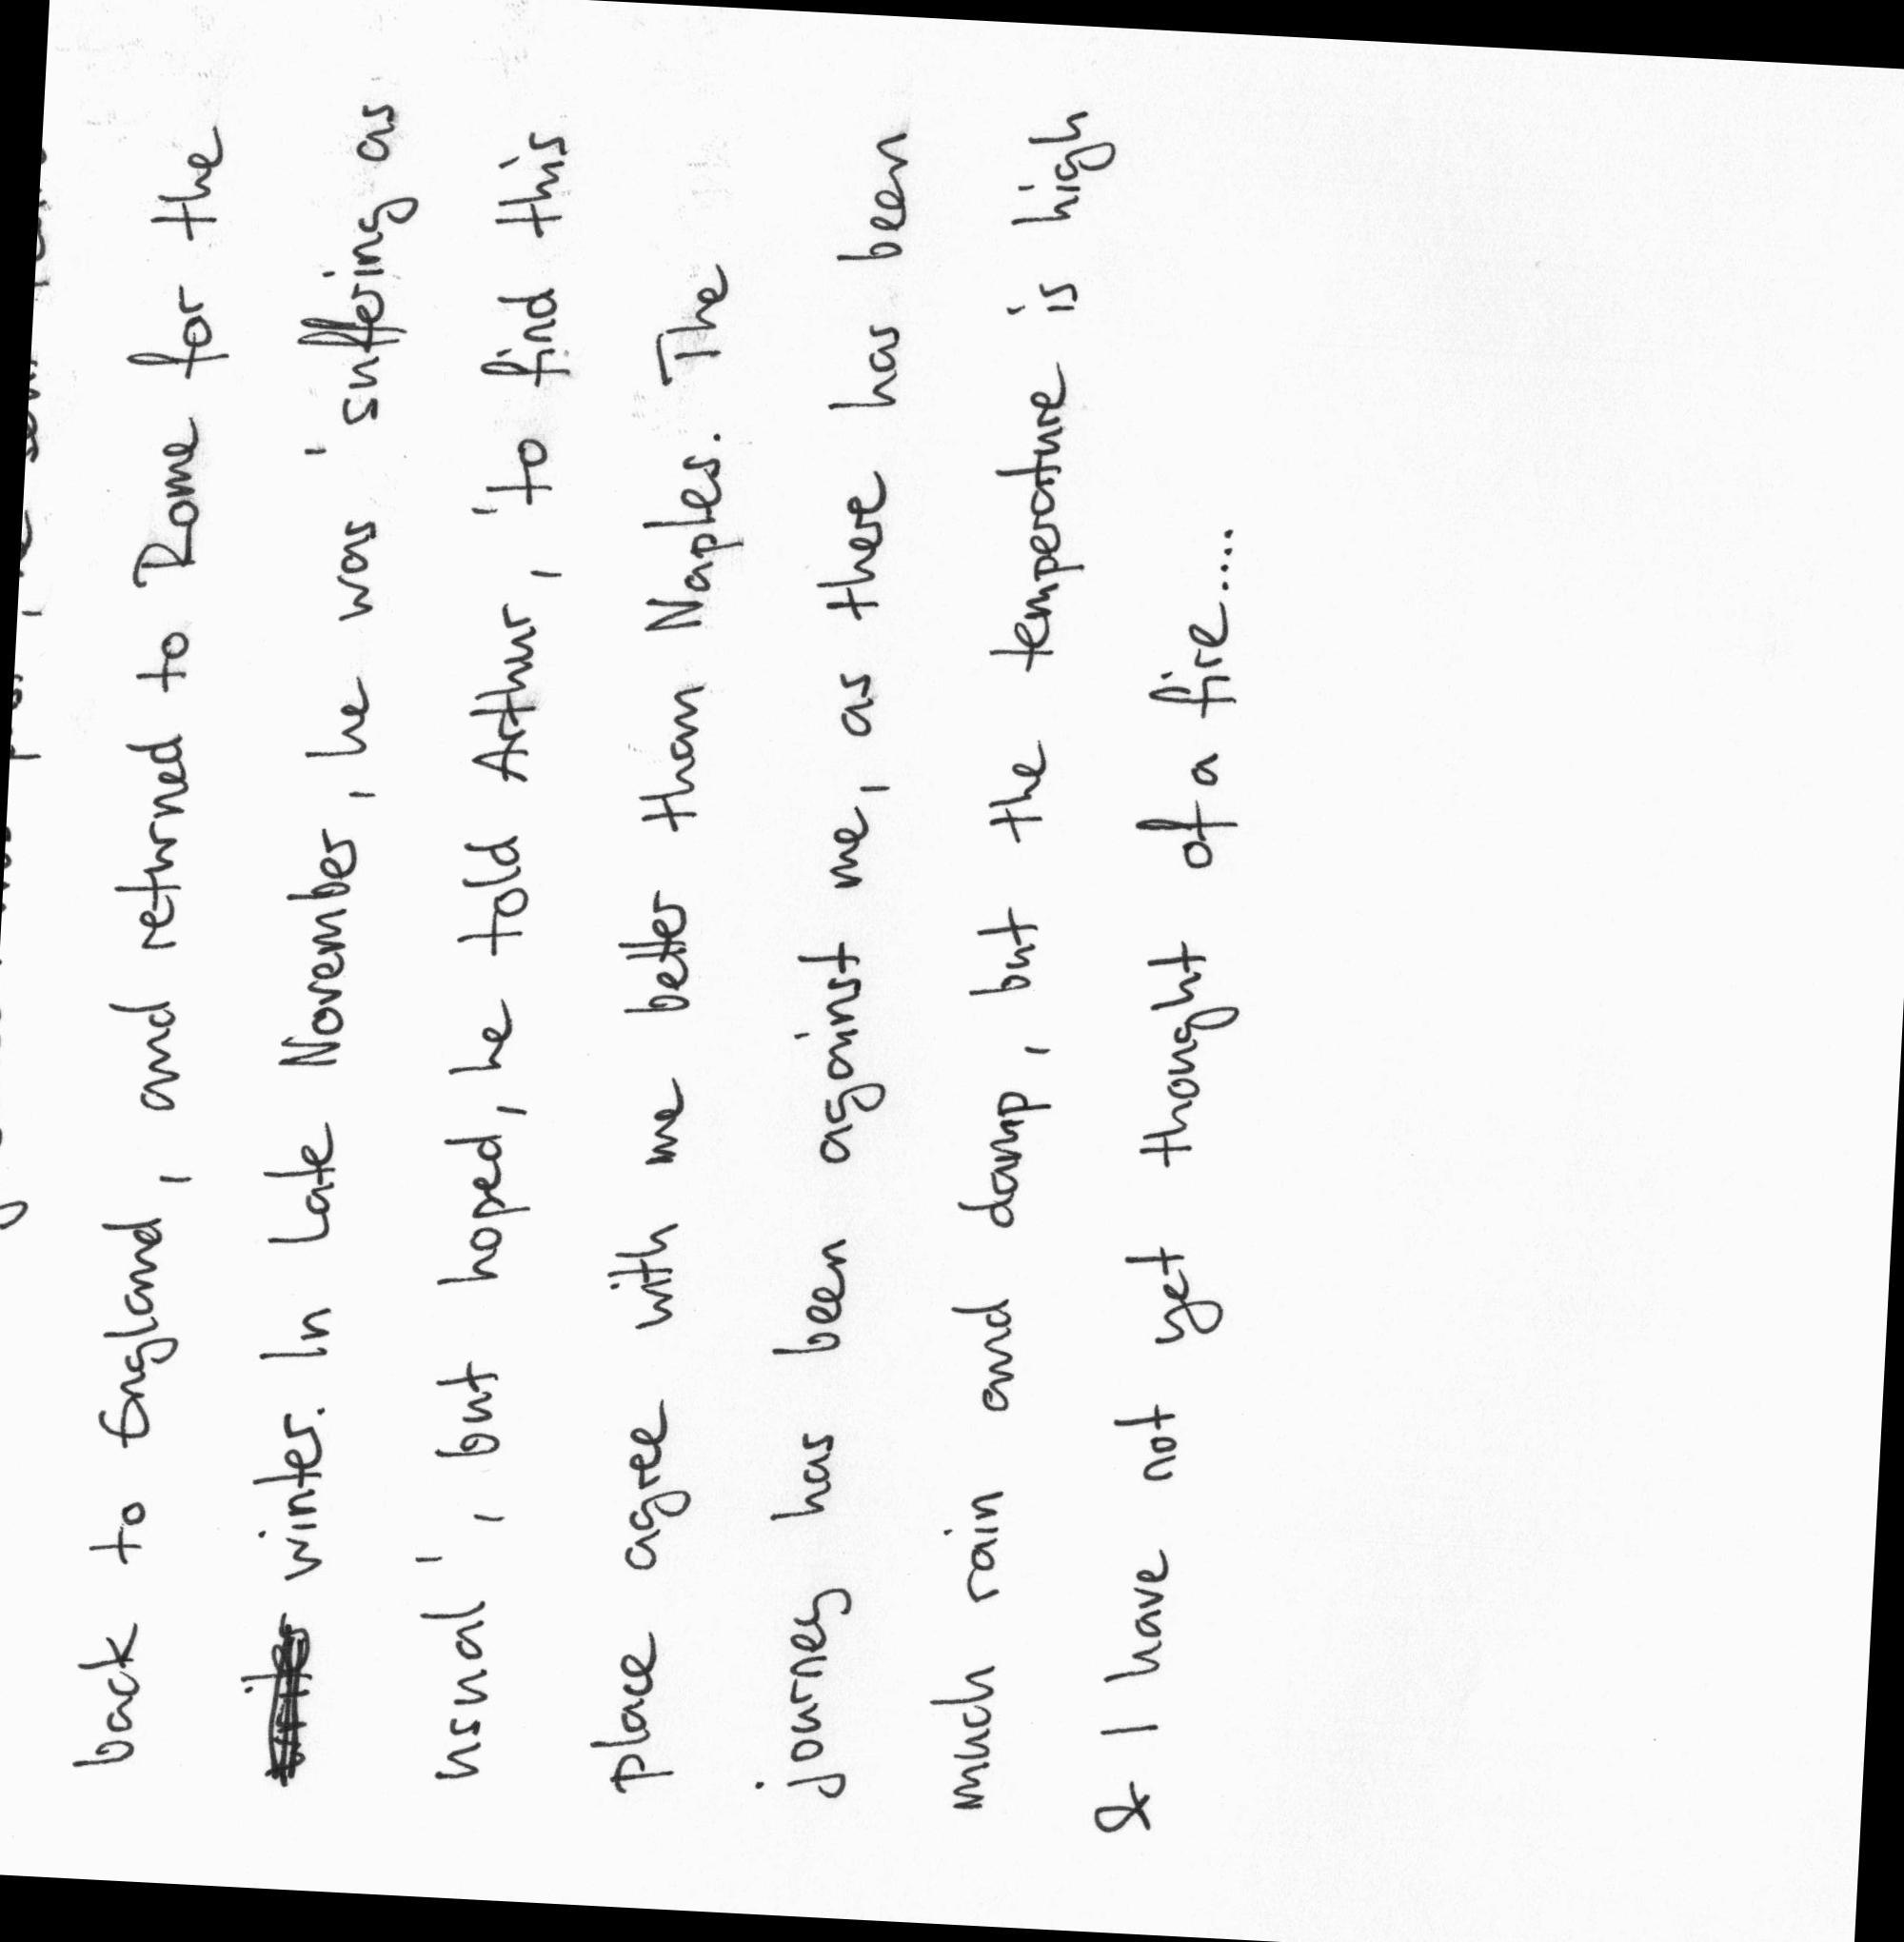 back to England, and returned to Rome for the
winter. In Late November, he was 'suffering as
usual', but hoped, he told Arthur, 'to find this
place agree with me better than Naples. The
journey has been against me, as there has been
much rain and damp, but the temperature is high
& I have not yet thought of a fire....